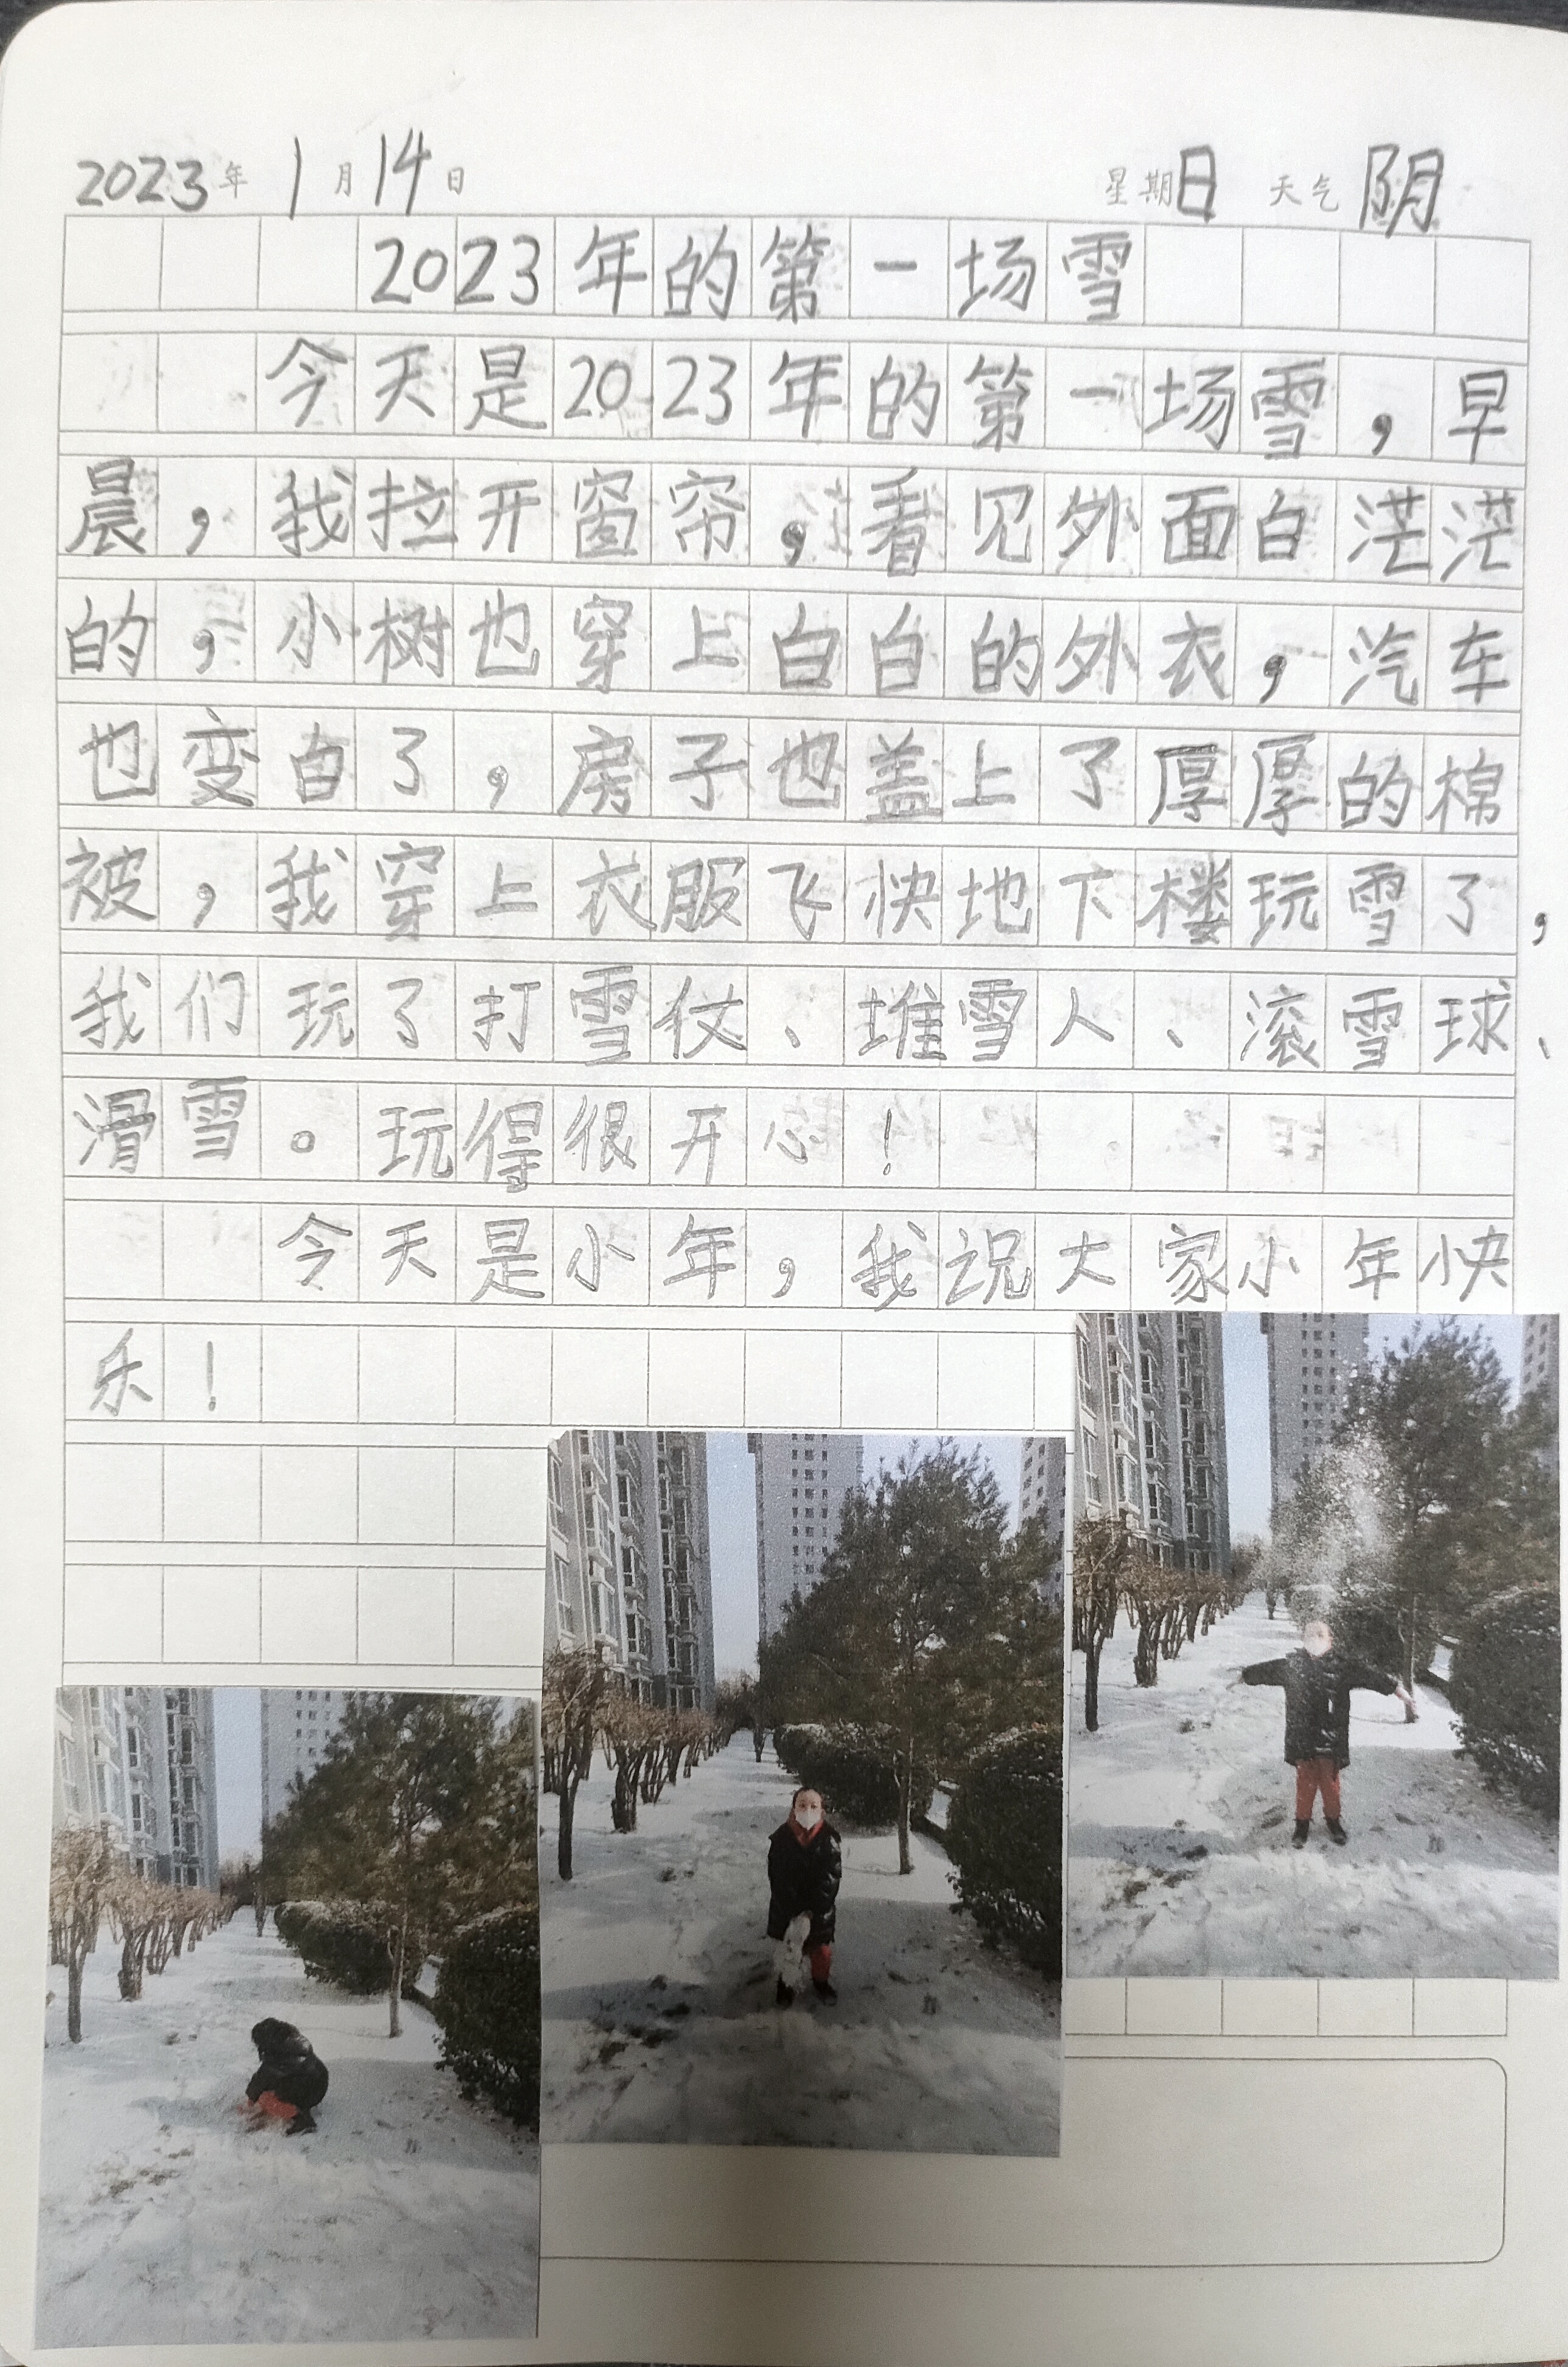 2023年 1月14日 星期日 天气 阴
2023年的第一场雪
今天是2023年的第一场雪，早
晨，我拉开窗帘，看见外面白茫茫
的，小树也穿上白白的外衣，汽车
也变白了，房子也盖上了厚厚的棉
被，我穿上衣服飞快地下楼玩雪了，
我们玩了打雪仗、堆雪人、滚雪球、
滑雪。玩得很开心！
今天是小年，我说大家小年快
乐！